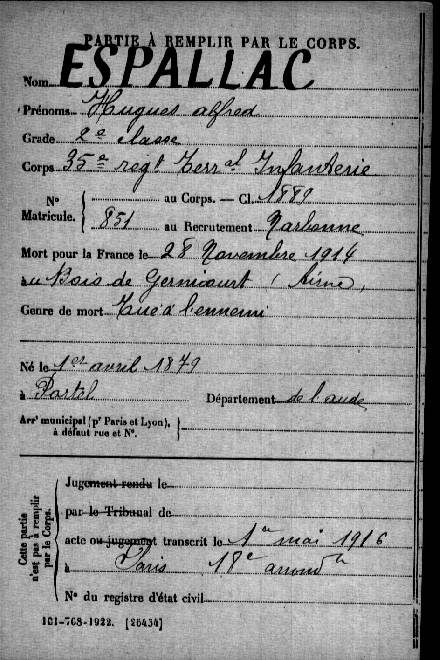 PARTIE À REMPLIR PAR LE CORPS.
Nom ESPALLAC
Prénoms Hugues alfred
Grade 2e classe
Corps 35e regt Terral Infanterie
N° Matricule. { au Corps. — Cl. 1889
851 au Recrutement Narbonne
Mort pour la France le 28 Novembre 1914
au Bois de Gernicourt (Aisne)
Genre de mort Tué à l'ennemi
Né le 1er avril 1879
à Portel Département de l'aude
Arrt municipal (pr Paris et Lyon), à défaut rue et N°.
Cette partie n'est pas à remplir par le Corps.
Jugement rendu le
par le Tribunal de
acte ou jugement transcrit le 1er mai 1916
à Paris 18e arrondt
N° du registre d'état civil
101-708-1922. [26434]